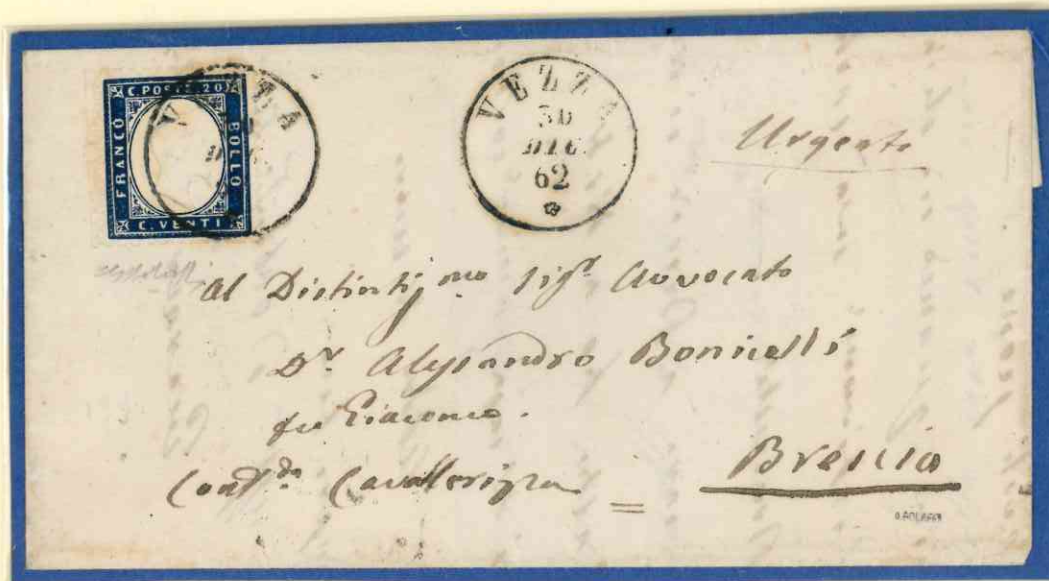 C. POSTE 20
FRANCO
BOLLO
C. VENTI
V ZZA
VEZZA
30
DIC.
62
Urgente
Al Distintissmo Sigr Avvocato
Dr Alessandro Bonicelli
fu Giacomo.
Contda Cavallerizza =
Brescia